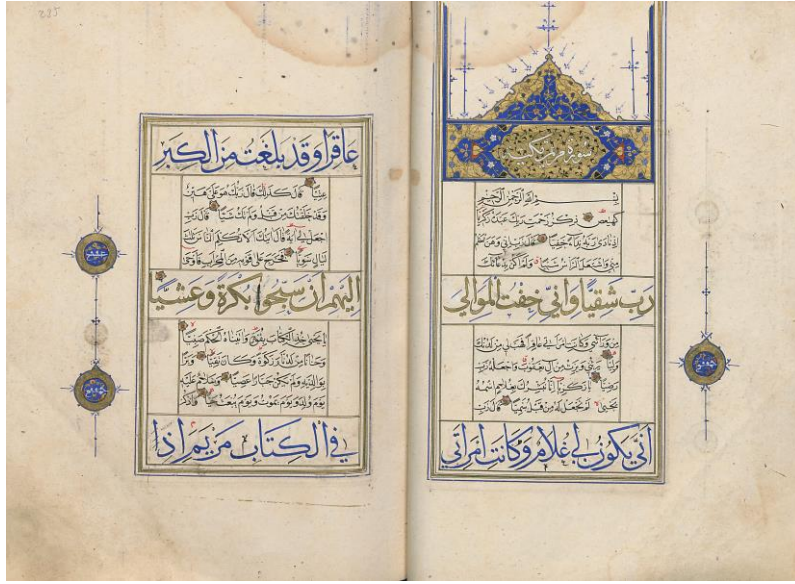 سورة مريم مكية
بسم الله الرحمن الرحيم
كهيعص ذكر رحمت ربك عبده زكريا
اذ نادى ربه نداء خفيا قال رب اني وهن العظم
مني واشتعل الراس شيبا ولم اكن بدعائك
رب شقيا واني خفت الموالي
من ورائي وكانت امراتي عاقرا فهب لي من لدنك
وليا يرثني ويرث من ال يعقوب واجعله رب
رضيا يا زكريا انا نبشرك بغلام اسمه
يحيى لم نجعل له من قبل سميا قال رب
انى يكون لي غلام وكانت امراتي
235
عاقرا وقد بلغت من الكبر
عتيا قال كذلك قال ربك هو علي هين
وقد خلقتك من قبل ولم تك شيئا قال رب
اجعل لي اية قال ايتك الا تكلم الناس ثلث
ليال سويا فخرج على قومه من المحراب فاوحى
اليهم ان سبحوا بكرة وعشيا
يا يحيى خذ الكتاب بقوة واتيناه الحكم صبيا
وحنانا من لدنا وزكوة وكان تقيا وبرا
بوالديه ولم يكن جبارا عصيا وسلام عليه
يوم ولد ويوم يموت ويوم يبعث حيا واذكر
في الكتاب مريم اذا